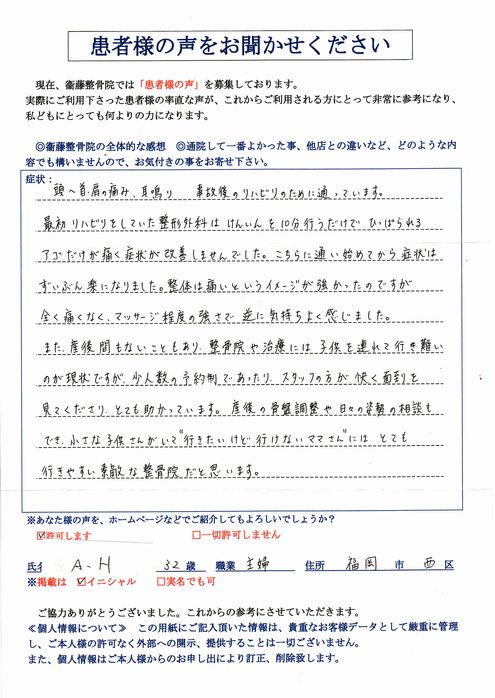 患者様の声をお聞かせください
現在、衞藤整骨院では「患者様の声」を募集しております。
実際にご利用下さった患者様の率直な声が、これからご利用される方にとって非常に参考になり、
私どもにとっても何よりの力になります。
◎衞藤整骨院の全体的な感想　◎通院して一番よかった事、他店との違いなど、どのような内
容でも構いませんので、お気付きの事をお寄せ下さい。
症状：
頭～首.肩の痛み、耳鳴り　事故後のリハビリのために通っています。
最初リハビリをしていた整形外科は けんいんを10分行うだけで ひっぱられる
アゴだけが痛く症状が改善しませんでした。こちらに通い始めてから症状は
ずいぶん楽になりました。整体は痛いというイメージが強かったのですが
全く痛くなく、マッサージ程度の強さで 逆に気持ちよく感じました。
また、産後間もないこともあり、整骨院や治療には 子供を連れて行き難い
のが現状ですが、少人数の予約制であったり、スタッフの方が快く面倒を
見てくださり、とても助かっています。産後の骨盤調整や日々の姿勢の相談も
でき、小さな子供さんがいて"行きたいけど行けないママさん"には とても
行きやすい素敵な整骨院だと思います。
※あなた様の声を、ホームページなどでご紹介してもよろしいでしょうか？
☑許可します　□一切許可しません
氏名　A-H　32歳　職業 主婦　住所　福岡　市　西　区
※掲載は　☑イニシャル　□実名でも可
ご協力ありがとうございました。これからの参考にさせていただきます。
≪個人情報について≫　この用紙にご記入頂いた情報は、貴重なお客様データとして厳重に管理
し、ご本人様の許可なく外部への開示、提供することは一切ございません。
また、個人情報はご本人様からのお申し出により訂正、削除致します。